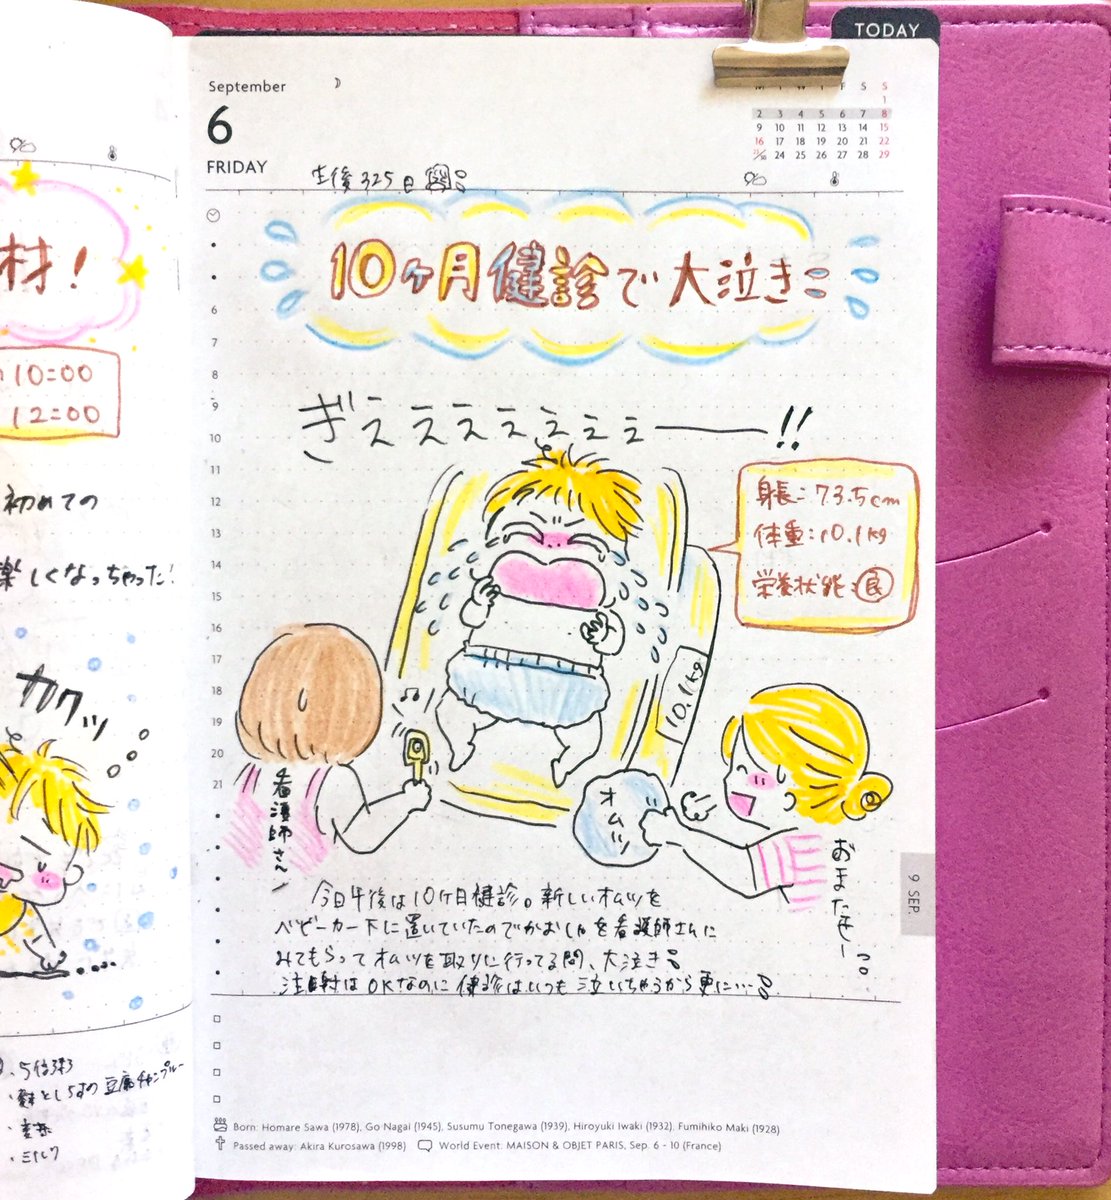 材!
10:00
12:00
初めての
楽しくなっちゃった!
カクッ
5倍粥
豆腐チャンプルー
ミルク
TODAY
September
6
FRIDAY
M T W T F S S
1
2 3 4 5 6 7 8
9 10 11 12 13 14 15
16 17 18 19 20 21 22
23/30 24 25 26 27 28 29
生後325日
10ヶ月健診で大泣き
ぎえぇぇぇぇぇぇ――!!
身長:73.5cm
体重:10.1kg
栄養状態:良
10.1kg
看護師さん
オムツ
おまたせー
今日午後は10ヶ月健診。新しいオムツを
ベビーカー下に置いていたのでかおしゃを看護師さんに
みてもらってオムツを取りに行ってる間、大泣き
注射はOKなのに健診はいつも泣いちゃうから更に…
6
7
8
9
10
11
12
13
14
15
16
17
18
19
20
21
9 SEP.
Born: Homare Sawa (1978), Go Nagai (1945), Susumu Tonegawa (1939), Hiroyuki Iwaki (1932), Fumihiko Maki (1928)
Passed away: Akira Kurosawa (1998) World Event: MAISON & OBJET PARIS, Sep. 6 - 10 (France)